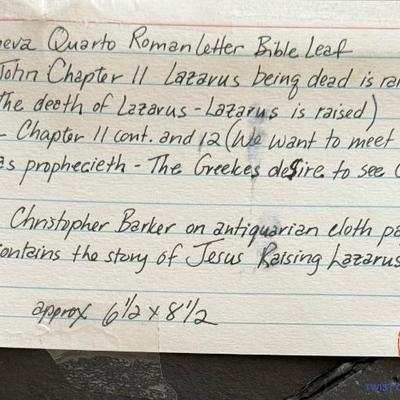 eva Quarto Roman Letter Bible Leaf
John Chapter 11 Lazarus being dead is rai
The deeth of Lazarus - Lazarus is raised)
- Chapter 11 cont. and 12 (We want to meet
as prophecieth - The Greekes desire to see
Christopher Barker on antiquarian cloth pa
ontains the story of Jesus Raising Lazarus
approx 6 1/2 x 8 1/2
TWIST